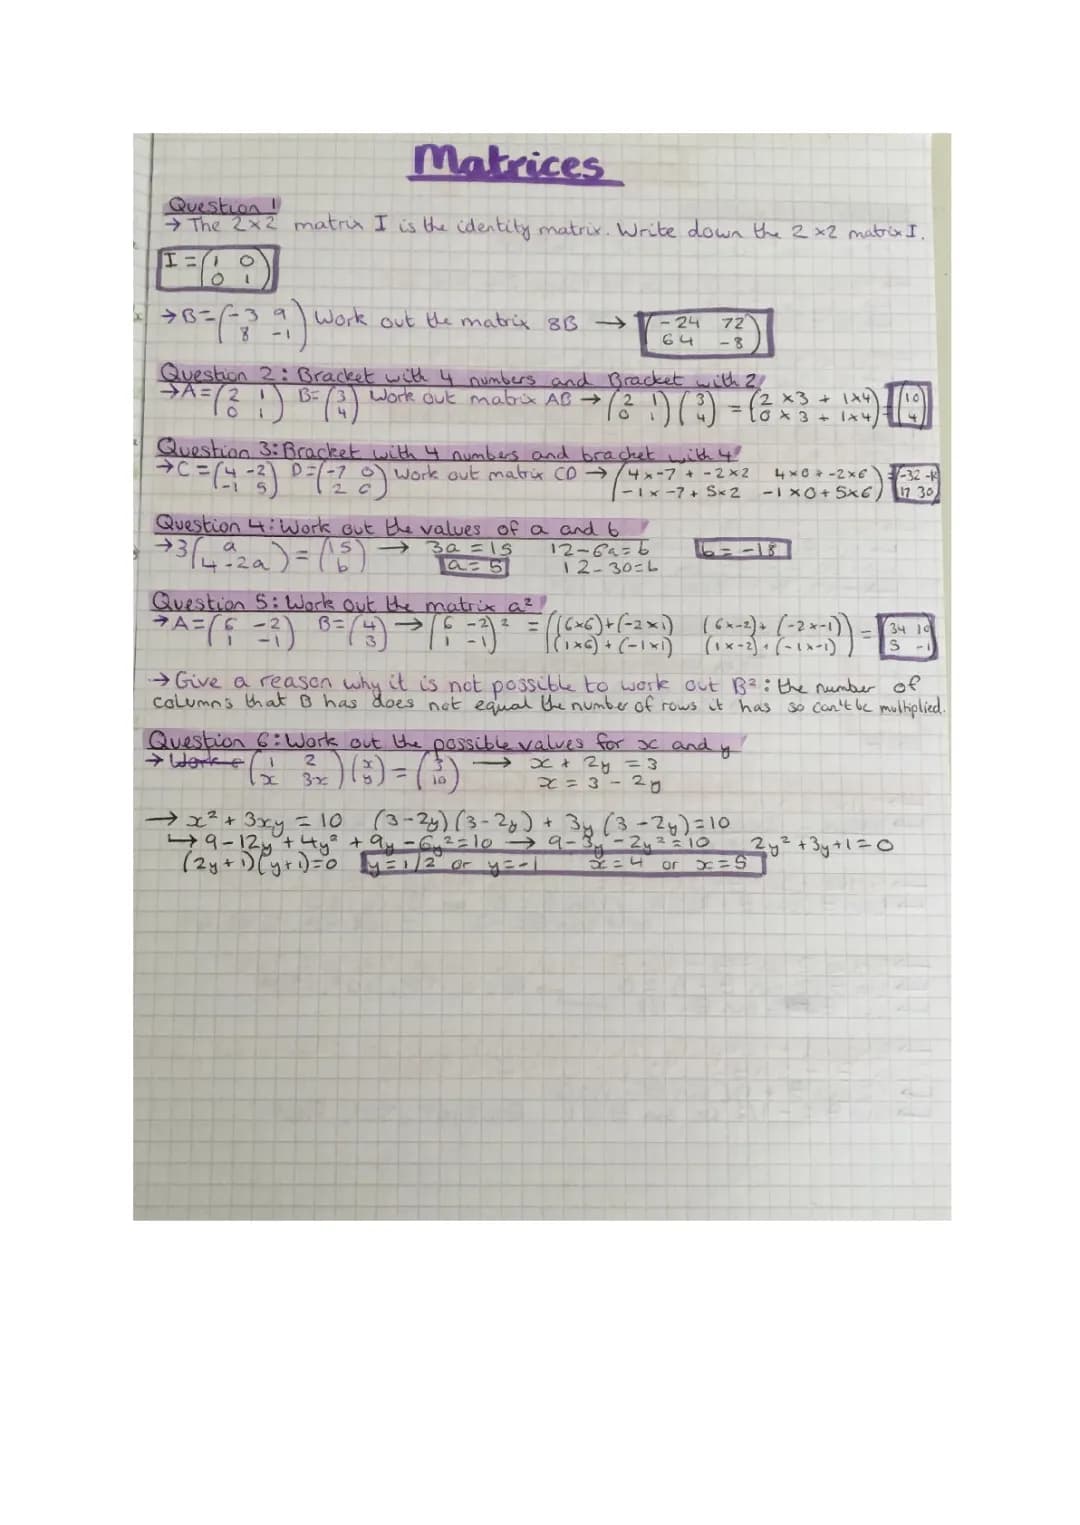 Matrices
Question 1
→ The 2x2 matrix I is the identity matrix. Write down the 2x2 matrix I.
I = (1 0
0 1)
→ B = (-3 9
8 -1) Work out the matrix 8B → (-24 72
64 -8)
Question 2: Bracket with 4 numbers and Bracket with 2
→ A = (2 1 B = (3 Work out matrix AB → (2 1)(3 = (2 x3 + 1x4) = (10
0 1) 4) 0 1) 4) 0 x 3 + 1x4) 4)
Question 3: Bracket with 4 numbers and bracket with 4
→ C = (4 -2 D = (-7 0 Work out matrix CD → (4x-7 + -2x2 4x0 + -2x6) = (-32
-1 5) 2 6) -1x-7 + 5x2 -1x0 + 5x6) 17 30)
Question 4: Work out the values of a and b
→ 3(a = (15 → 3a = 15 12-6a = b b = -18
4-2a) b) a = 5 12-30=b
Question 5: Work out the matrix a²
→ A = (6 -2 B = (4 → (6 -2)² = ((6x6)+(-2x1) (6x-2)+(-2x-1)) = (34 10
1 -1) 3) 1 -1) (1x6)+(-1x1) (1x-2)+(-1x-1) 5 -1
→ Give a reason why it is not possible to work out B²: the number of
columns that B has does not equal the number of rows it has so can't be multiplied.
Question 6: Work out the possible values for x and y
→ Work (1 2 )(x = (3 → x + 2y = 3
x 3x) y) 10) x = 3 - 2y
→ x² + 3xy = 10 (3-2y)(3-2y) + 3y(3-2y)=10
↳ 9-12y+4y² + 9y-6y²=10 → 9-3y-2y²=10 2y²+3y+1=0
(2y+1)(y+1)=0 y=1/2 or y=-1 x=4 or x=5